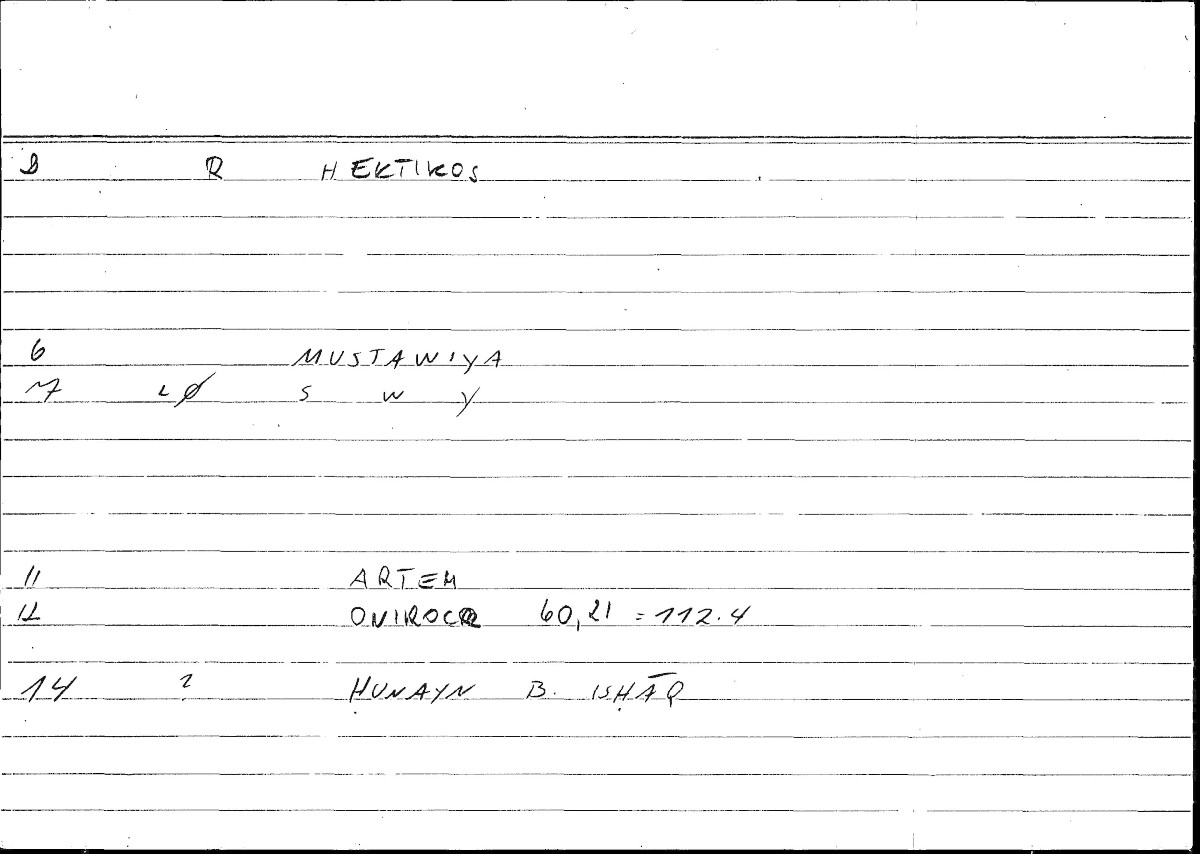 R HEKTIKOS
6 MUSTAWIYA
7 20 S W Y
11 ARTEM
12 ONIROCR 60,21 = 112.4
14 ? ḤUNAYN B. ISḤĀQ